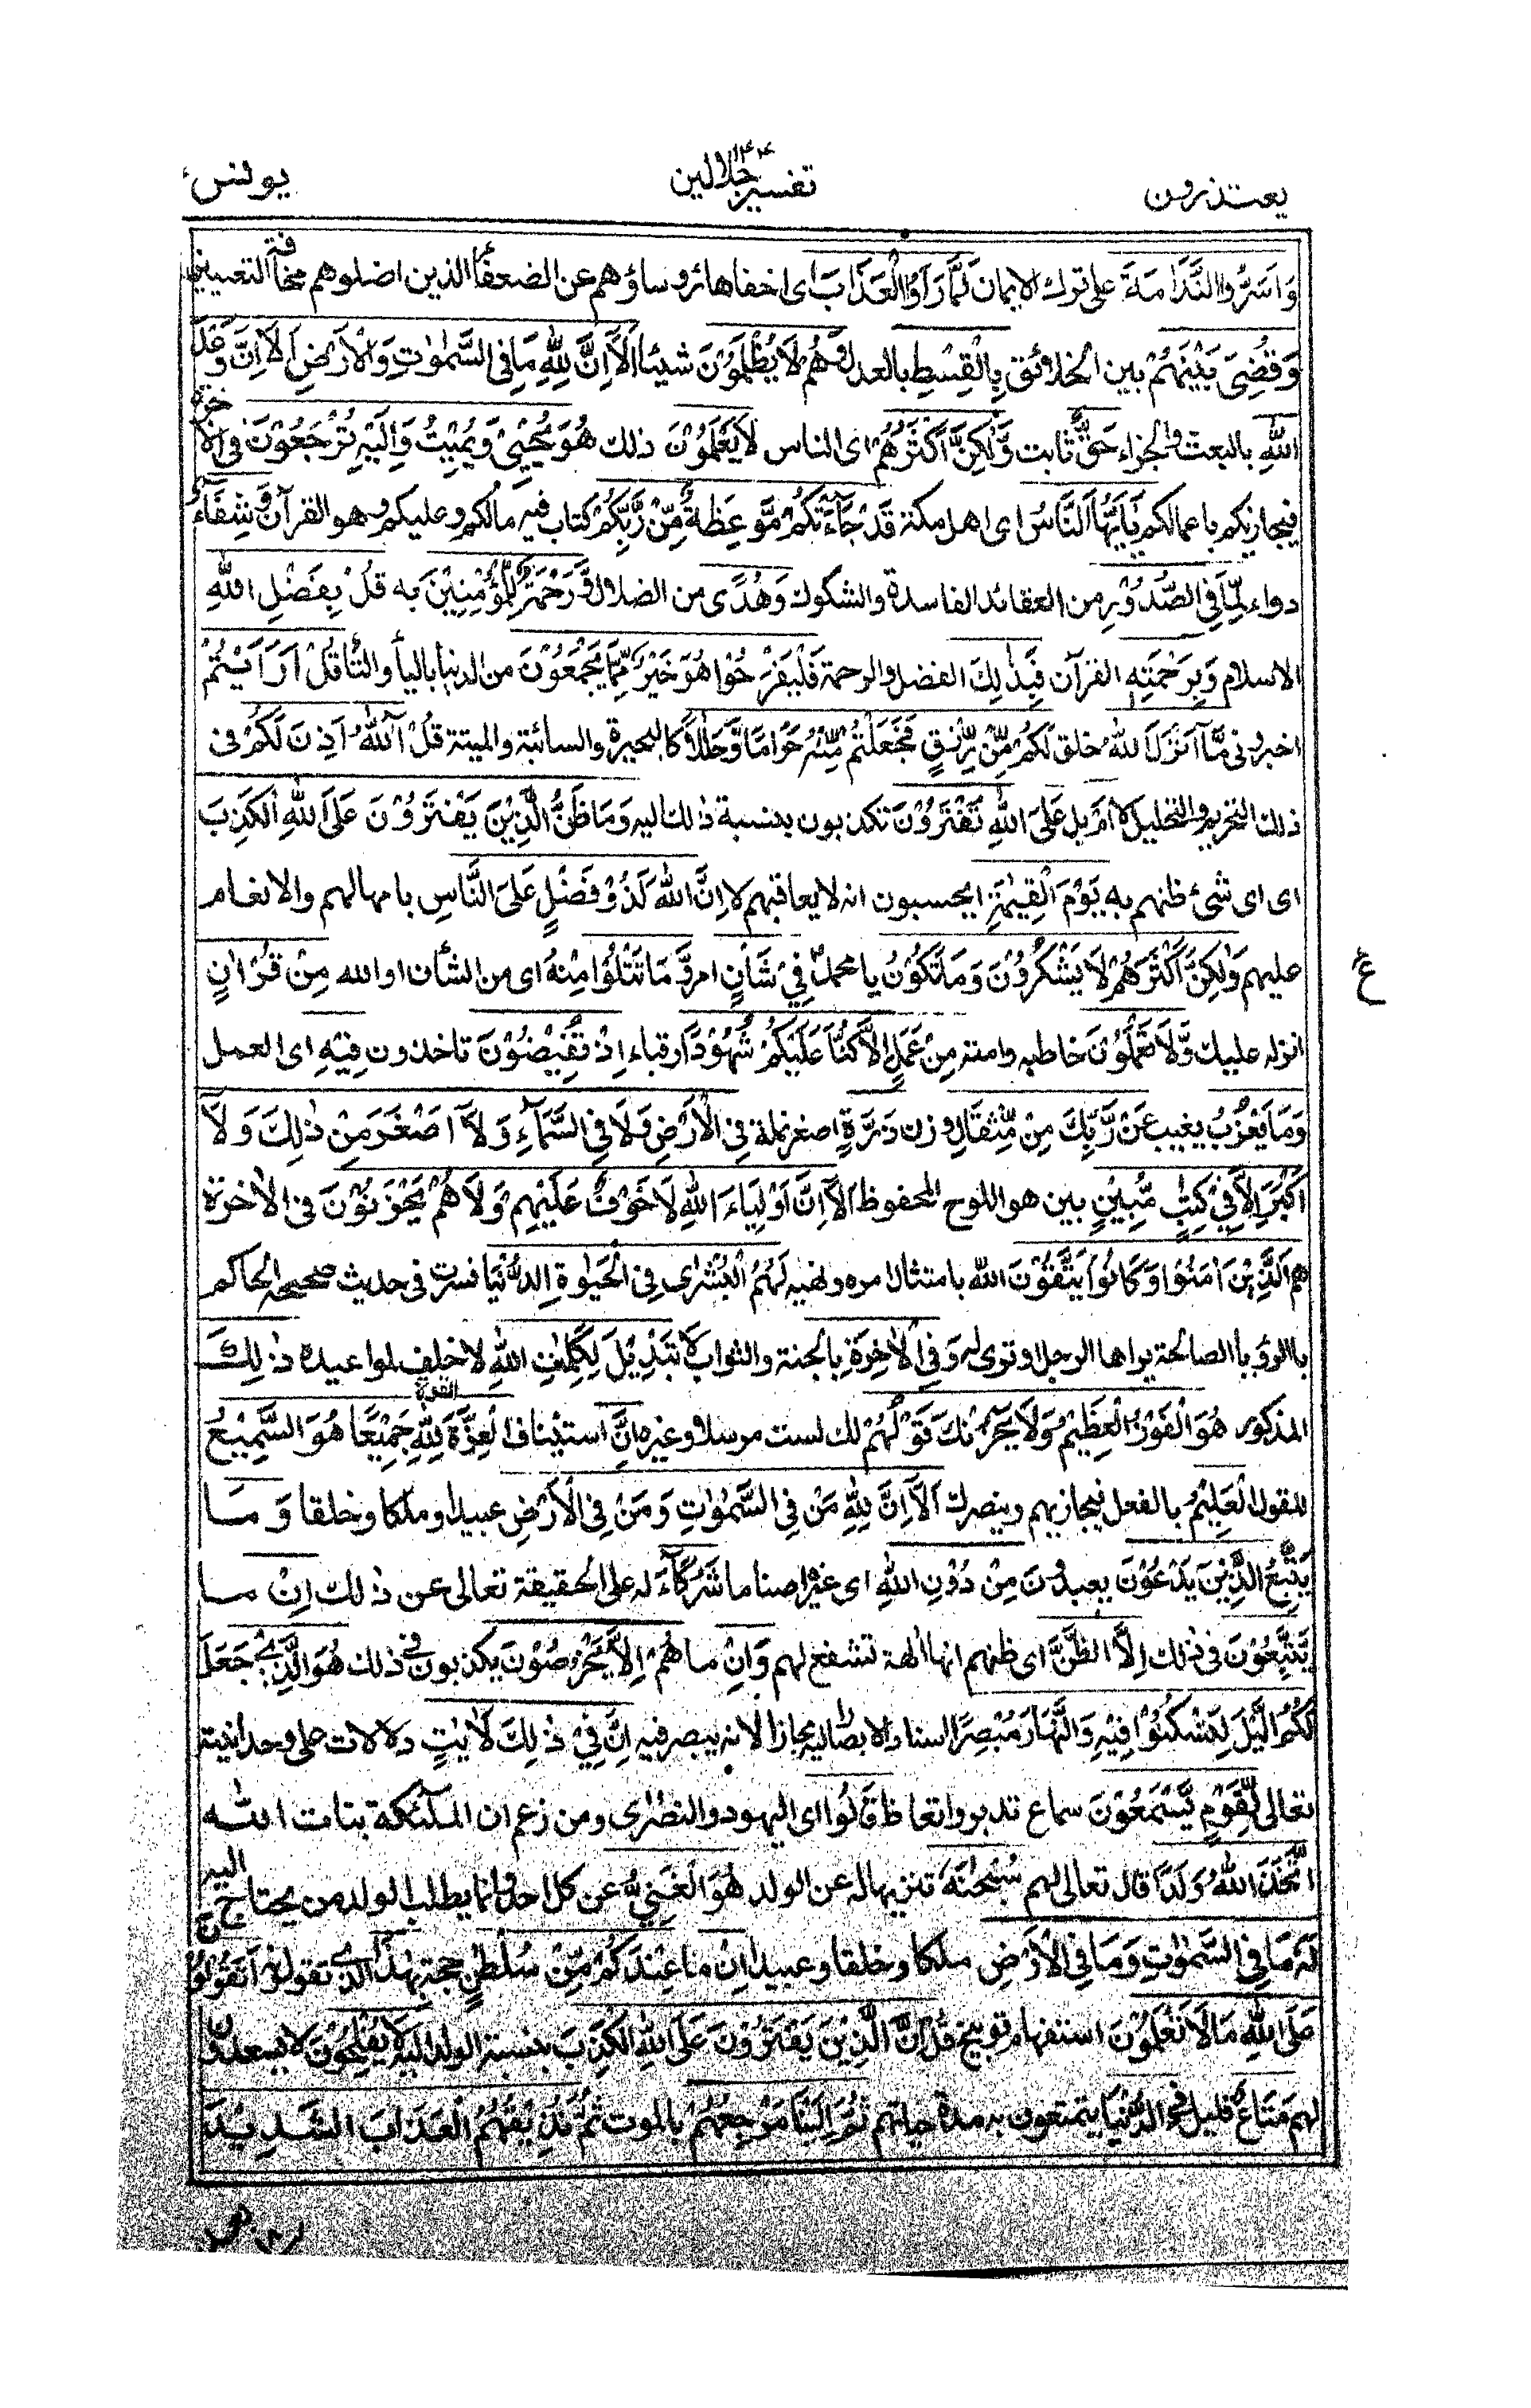 يعتذرون تفسير جلالين ١٤٤ يونس
وَاَسَرُّوا النَّدَامَةَ على ترك الايمان لَمَّا رَاَوُا الْعَذَابَ اى اخفاها رؤساؤهم عن الضعفأ الذين اضلوهم مخافة التعيير
وَقُضِىَ بَيْنَهُمْ بين الخلائق بِالْقِسْطِ بالعدل وَهُمْ لَا يُظْلَمُوْنَ شيئا اَلَآ اِنَّ لِلّٰهِ مَا فِى السَّمٰوٰتِ وَالْاَرْضِ اَلَآ اِنَّ وَعْدَ
اللّٰهِ بالبعث والجزاء حَقٌّ ثابت وَّلٰكِنَّ اَكْثَرَهُمْ اى الناس لَا يَعْلَمُوْنَ ذلك هُوَ يُحْيِىْ وَيُمِيْتُ وَاِلَيْهِ تُرْجَعُوْنَ فى الاخرة
فيجازيكم باعمالكم يٰاَيُّهَا النَّاسُ اى اهل مكة قَدْ جَآءَتْكُمْ مَّوْعِظَةٌ مِّنْ رَّبِّكُمْ كتاب فيه مالكم وعليكم وهو القرآن وَشِفَآءٌ
دواء لِّمَا فِى الصُّدُوْرِ من العقائد الفاسدة والشكوك وَهُدًى من الضلال وَّرَحْمَةٌ لِّلْمُؤْمِنِيْنَ به قُلْ بِفَضْلِ اللّٰهِ
الاسلام وَبِرَحْمَتِهٖ القرآن فَبِذٰلِكَ الفضل والرحمة فَلْيَفْرَحُوْا هُوَ خَيْرٌ مِّمَّا يَجْمَعُوْنَ من الدنيا باليأ والتأ قُلْ اَرَاَيْتُمْ
اخبرونى مَّآ اَنْزَلَ اللّٰهُ خلق لَكُمْ مِّنْ رِّزْقٍ فَجَعَلْتُمْ مِّنْهُ حَرَامًا وَّحَلٰلًا كالبحيرة والسائبة والميتة قُلْ آللّٰهُ اَذِنَ لَكُمْ فى
ذلك التحريم والتحليل لا اَمْ بل عَلَى اللّٰهِ تَفْتَرُوْنَ تكذبون بنسبة ذلك اليه وَمَا ظَنُّ الَّذِيْنَ يَفْتَرُوْنَ عَلَى اللّٰهِ الْكَذِبَ
اى اى شئ ظنهم به يَوْمَ الْقِيٰمَةِ ايحسبون انه لا يعاقبهم لا اِنَّ اللّٰهَ لَذُوْ فَضْلٍ عَلَى النَّاسِ بامهالهم والانعام
عليهم وَلٰكِنَّ اَكْثَرَهُمْ لَا يَشْكُرُوْنَ وَمَا تَكُوْنُ يا محمد فِىْ شَاْنٍ امر وَّمَا تَتْلُوْا مِنْهُ اى من الشأن او الله مِنْ قُرْاٰنٍ
انزله عليك وَّلَا تَعْمَلُوْنَ خاطبه وامته مِنْ عَمَلٍ اِلَّا كُنَّا عَلَيْكُمْ شُهُوْدًا رقباء اِذْ تُفِيْضُوْنَ تاخذون فِيْهِ اى العمل
وَمَا يَعْزُبُ يغيب عَنْ رَّبِّكَ مِنْ مِّثْقَالِ وزن ذَرَّةٍ اصغر نملة فِى الْاَرْضِ وَلَا فِى السَّمَآءِ وَلَآ اَصْغَرَ مِنْ ذٰلِكَ وَلَآ
اَكْبَرَ اِلَّا فِىْ كِتٰبٍ مُّبِيْنٍ بين هو اللوح المحفوظ اَلَآ اِنَّ اَوْلِيَاءَ اللّٰهِ لَا خَوْفٌ عَلَيْهِمْ وَلَا هُمْ يَحْزَنُوْنَ فى الاخرة
هم الَّذِيْنَ اٰمَنُوْا وَكَانُوْا يَتَّقُوْنَ الله بامتثال امره ونهيه لَهُمُ الْبُشْرٰى فِى الْحَيٰوةِ الدُّنْيَا فسرت فى حديث صححه الحاكم
بالرؤيا الصالحة يراها الرجل او ترى له وَفِى الْاٰخِرَةِ بالجنة والثواب لَا تَبْدِيْلَ لِكَلِمٰتِ اللّٰهِ لا خلف لمواعيده ذٰلِكَ
المذكور هُوَ الْفَوْزُ الْعَظِيْمُ وَلَا يَحْزُنْكَ قَوْلُهُمْ لك لست مرسلا وغيره اِنَّ استيناف الْعِزَّةَ القوة لِلّٰهِ جَمِيْعًا هُوَ السَّمِيْعُ
للقول الْعَلِيْمُ بالفعل فيجازيهم وينصرك اَلَآ اِنَّ لِلّٰهِ مَنْ فِى السَّمٰوٰتِ وَمَنْ فِى الْاَرْضِ عبيدا وملكا وخلقا وَمَا
يَتَّبِعُ الَّذِيْنَ يَدْعُوْنَ يعبدون مِنْ دُوْنِ اللّٰهِ اى غيره اصناما شُرَكَآءَ له على الحقيقة تعالى عن ذلك اِنْ ما
يَّتَّبِعُوْنَ فى ذلك اِلَّا الظَّنَّ اى ظنهم انها الهة تشفع لهم وَاِنْ ما هُمْ اِلَّا يَخْرُصُوْنَ يكذبون فى ذلك هُوَ الَّذِىْ جَعَلَ
لَكُمُ الَّيْلَ لِتَسْكُنُوْا فِيْهِ وَالنَّهَارَ مُبْصِرًا اسناد الابصار اليه مجاز لانه يبصر فيه اِنَّ فِىْ ذٰلِكَ لَاٰيٰتٍ دلالات على وحدانيته
تعالى لِّقَوْمٍ يَّسْمَعُوْنَ سماع تدبر واتعاظ قَالُوا اى اليهود والنصرى ومن زعم ان الملئكة بنات الله
اتَّخَذَ اللّٰهُ وَلَدًا قال تعالى لهم سُبْحٰنَهٗ تنزيها له عن الولد هُوَ الْغَنِىُّ عن كل احد وانما يطلب الولد من يحتاج اليه
لَهٗ مَا فِى السَّمٰوٰتِ وَمَا فِى الْاَرْضِ ملكا وخلقا وعبيدا اِنْ ما عِنْدَكُمْ مِّنْ سُلْطٰنٍ حجة بِهٰذَا الذى تقولونه اَتَقُوْلُوْنَ
عَلَى اللّٰهِ مَا لَا تَعْلَمُوْنَ استفهام توبيخ قُلْ اِنَّ الَّذِيْنَ يَفْتَرُوْنَ عَلَى اللّٰهِ الْكَذِبَ بنسبة الولد اليه لَا يُفْلِحُوْنَ لا يسعدون
لهم مَتَاعٌ قليل فِى الدُّنْيَا يتمتعون به مدة حياتهم ثُمَّ اِلَيْنَا مَرْجِعُهُمْ بالموت ثُمَّ نُذِيْقُهُمُ الْعَذَابَ الشَّدِيْدَ